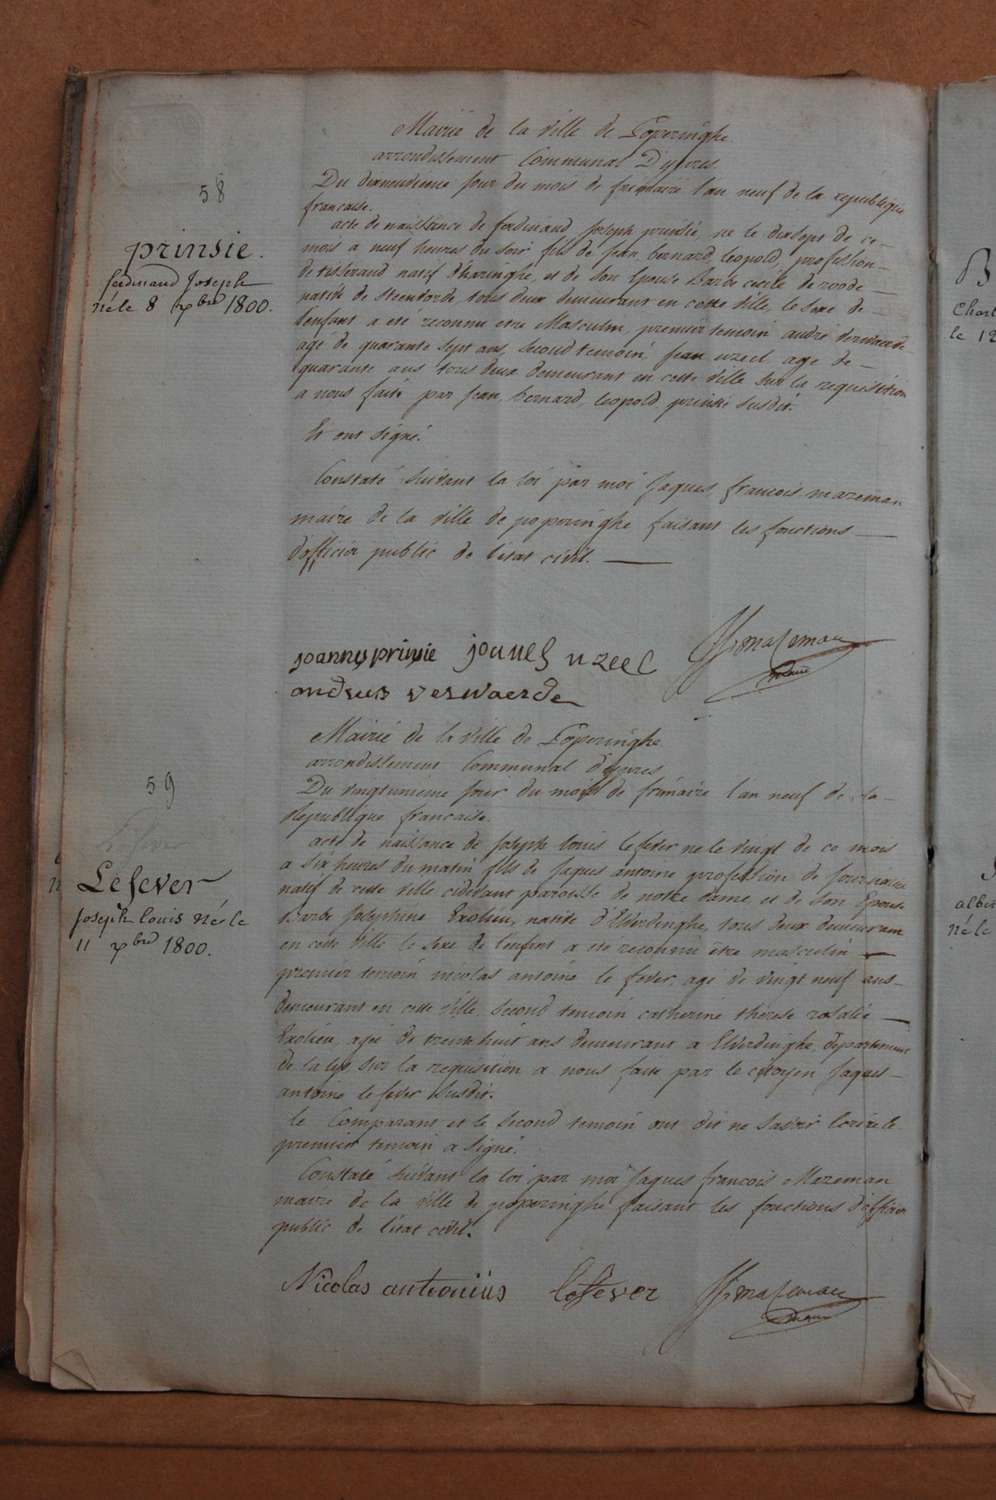 58
prinsie.
ferdinand Joseph
né le 8 xbre 1800.
Mairie de la ville de Poperinghe
arrondissement Communal D'ypres
Du dixneuvieme jour du mois de frimaire l'an neuf de la republique
francaise.
acte de naissance de ferdinand Joseph prinsie né le dixsept de ce
mois a neuf heures du soir, fils de jean bernard leopold, profession
de tisserand natif d'haringhe, et de son Epouse Barbe cecile de
native de steenvorde, tous deux demeurant en cette ville, le sexe de
l'enfant a eté reconnu etre Masculin, premier temoin andré
agé de quarante sept ans, second temoin jean uzeel agé de
quarante ans tous deux demeurant en cette ville sur la requisition
a nous faite par jean bernard leopold prinsie susdit.
Et ont signé.
Constaté suivant la loi par moi Jaques francois mazeman
maire de la ville de poperinghe faisant les fonctions
d'officier public de l'etat civil.
joannes prinsie
uzeel
JF mazeman
maire
andreus verwaerde
59
Lefever
Joseph louis né le
11 xbre 1800.
Mairie de la ville de Poperinghe
arrondissement Communal d'ypres
Du vingtunieme jour du mois de frimaire l'an neuf de la
republique francaise.
acte de naissance de Joseph louis lefever né le vingt de ce mois
a six heures du matin fils de Jaques antoine profession de journalier
natif de cette ville cidevant paroisse de notre dame et de son Epouse
Barbe Josephine native d'Elverdinghe, tous deux demeurant
en cette ville le sexe de l'enfant a eté reconnu etre masculin
premier temoin nicolas antoine le fever, agé de vingt neuf ans
demeurant en cette ville, second temoin catherine thérese rosalie
agée de trente huit ans demeurant a Elverdinghe, departement
de la lys sur la requisition a nous faite par le citoyen Jaques
antoine lefever susdit.
le Comparant et le second temoin ont dit ne savoir Ecrire le
premier temoin a signé.
Constaté suivant la loi par moi Jaques francois Mazeman
maire de la ville de poperinghe faisant les fonctions d'officier
public de l'etat civil.
Nicolas antonius lefever
JF mazeman
maire
B
Charl
le 12
né le